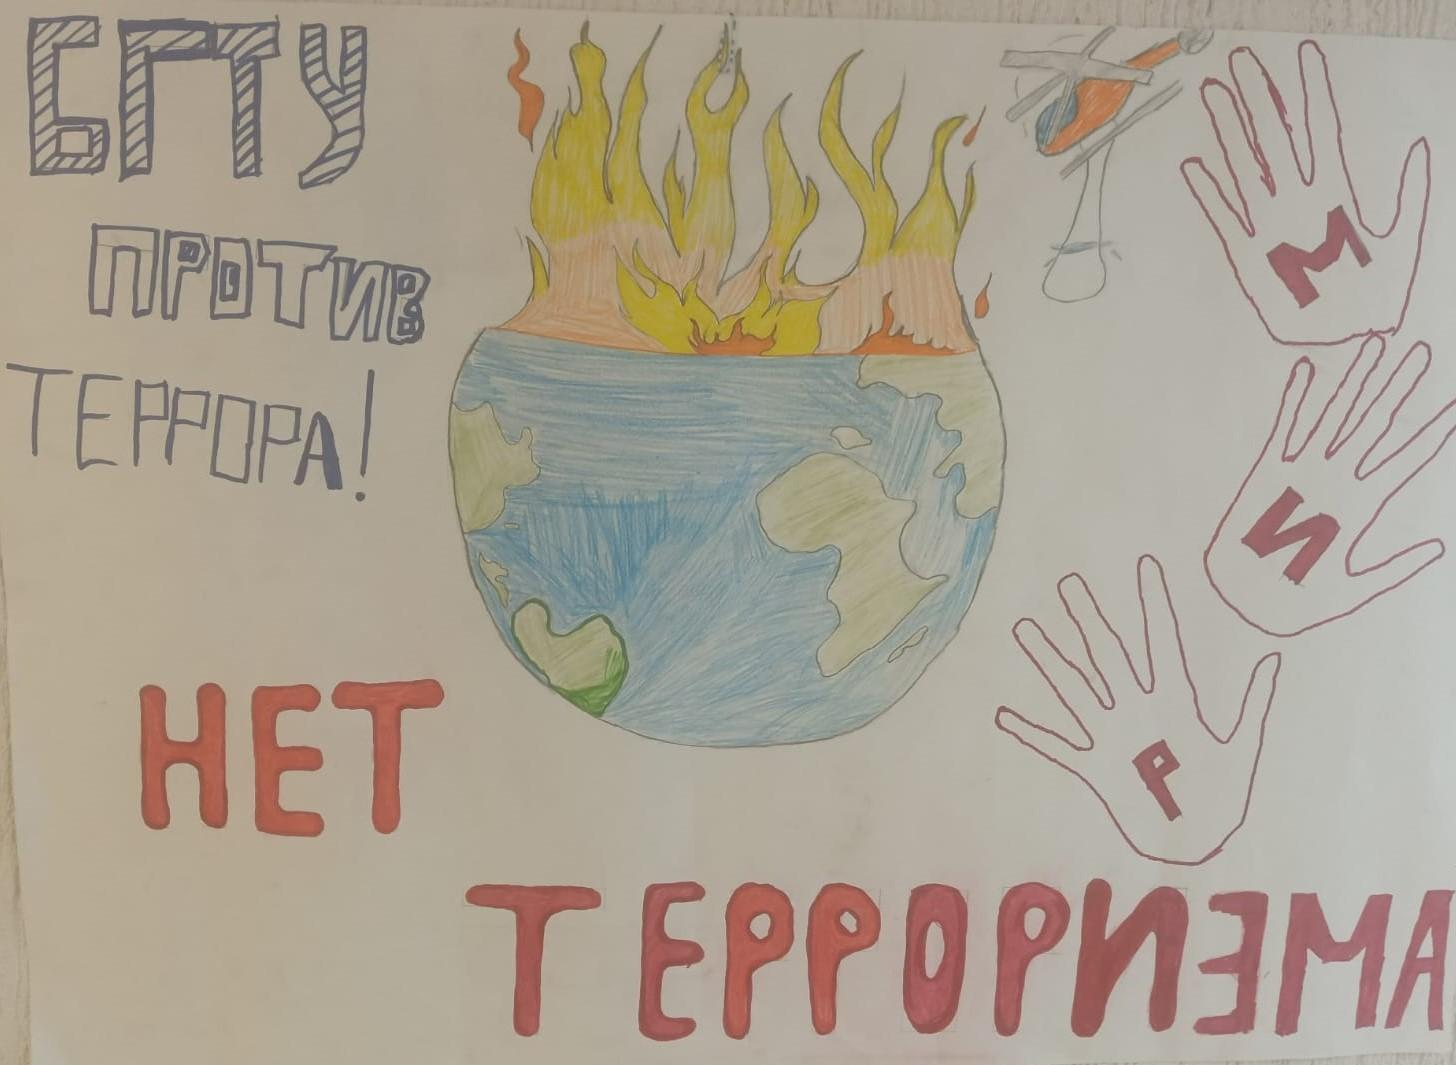 БГТУ
ПРОТИВ
ТЕРРОРА!
М
И
Р
НЕТ
ТЕРРОРИЗМА